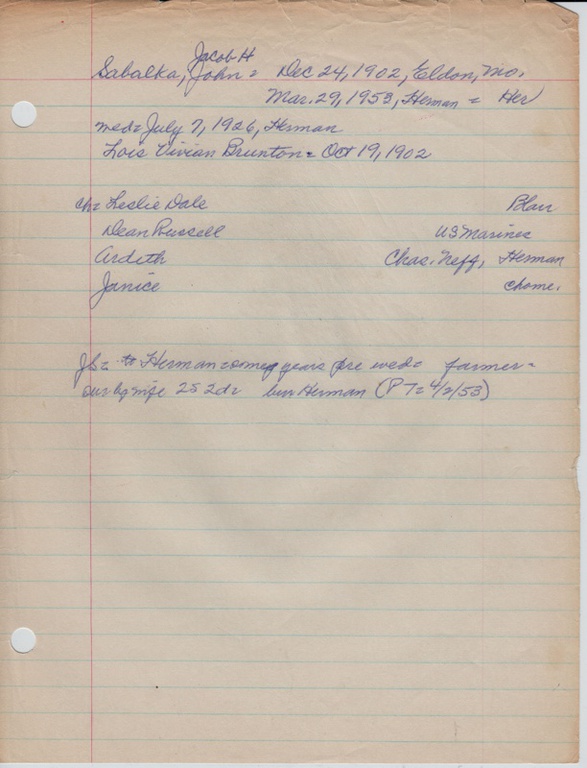 Jacob H
Sabalka, John = Dec 24, 1902, Eldon, Mo.
Mar. 29, 1953, Herman = Her
wed= July 7, 1926, Herman
Lois Vivian Brunton = Oct 19, 1902
ch= Leslie Dale Blair
Dean Russell US Marines
Ardeth Chas. Neff, Herman
Janice home.
Js= to Herman = some years pre wed= farmer=
sur by wife 2s 2d= bur Herman (PT= 4/2/53)